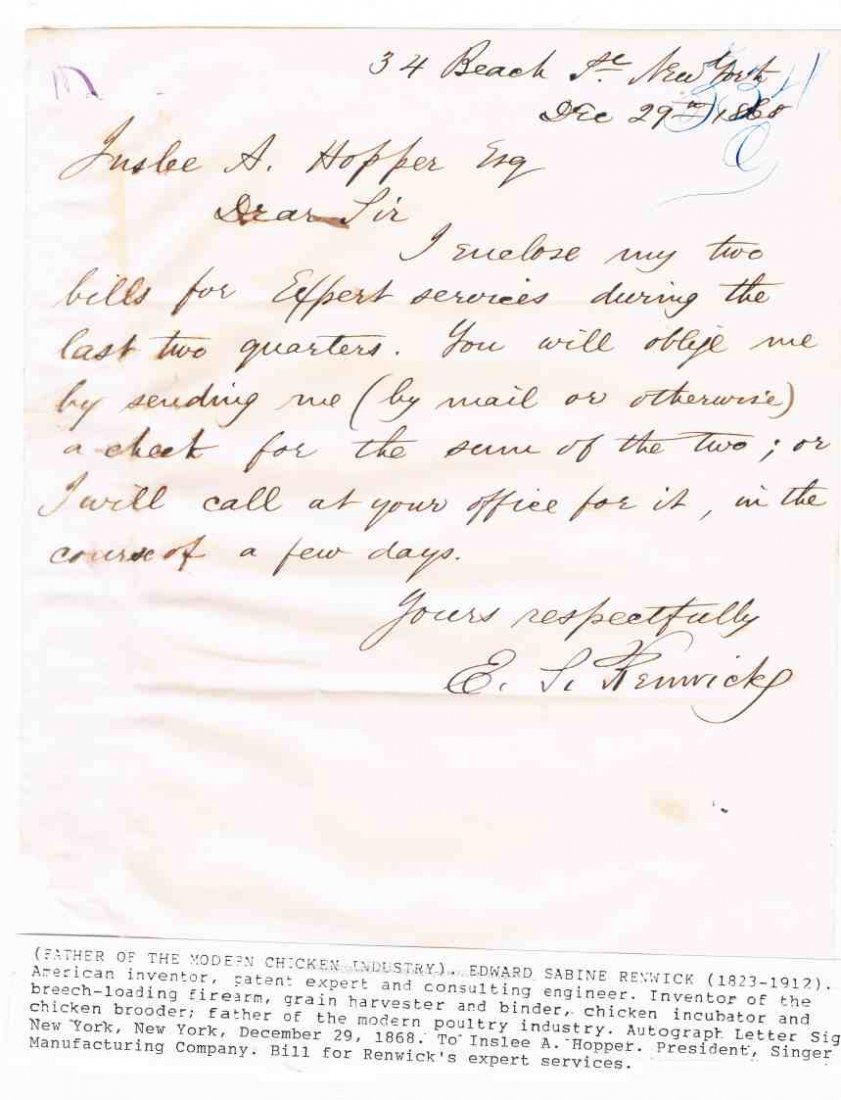 34 Beach St. New York
Dec 29th 1868
Inslee A. Hopper Esq
Dear Sir
I enclose my two
bills for Expert services during the
last two quarters. You will oblige me
by sending me (by mail or otherwise)
a check for the sum of the two; or
I will call at your office for it, in the
course of a few days.
Yours respectfully
E. S. Renwick
(FATHER OF THE MODERN CHICKEN INDUSTRY). EDWARD SABINE RENWICK (1823-1912).
American inventor, patent expert and consulting engineer. Inventor of the
breech-loading firearm, grain harvester and binder, chicken incubator and
chicken brooder; father of the modern poultry industry. Autograph Letter Sig
New York, New York, December 29, 1868. To Inslee A. Hopper. President, Singer
Manufacturing Company. Bill for Renwick's expert services.